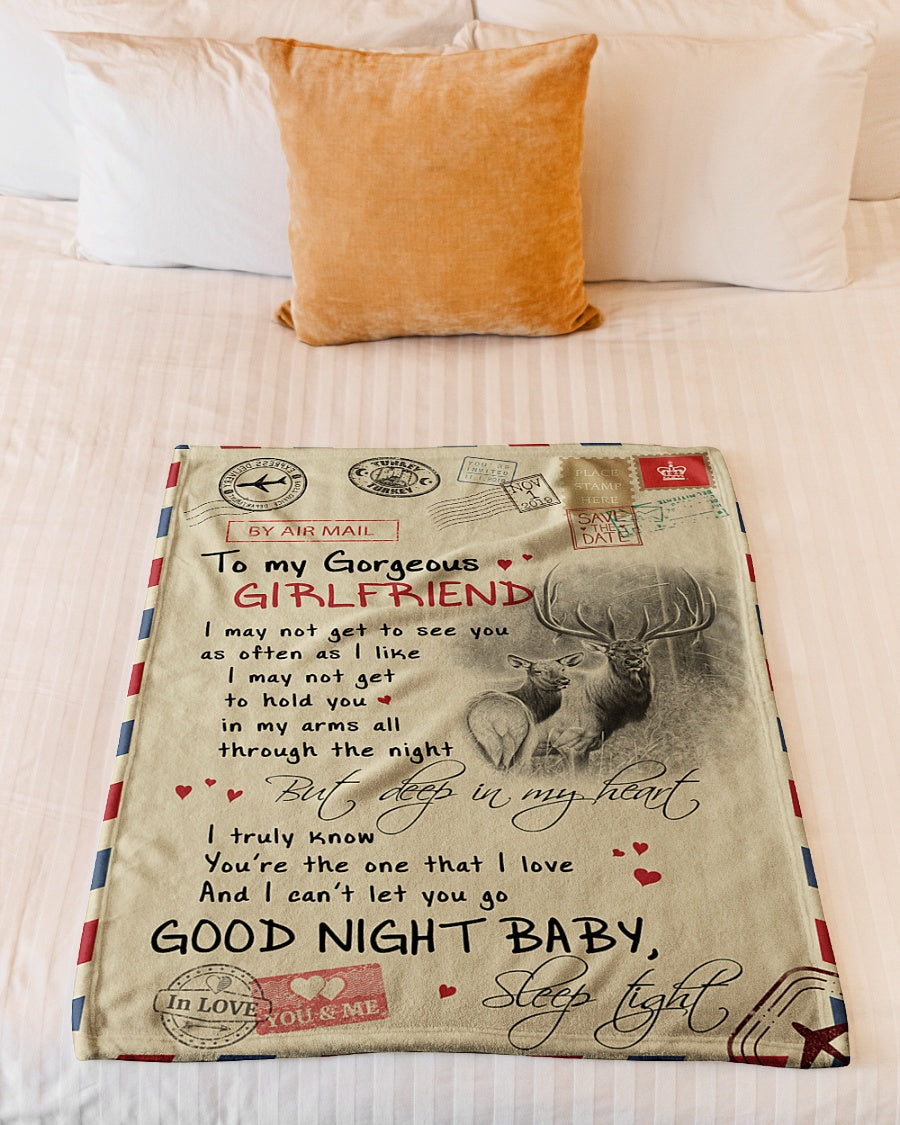 EXPRESS DELIVERY
TURKEY
TURKEY
YOU'RE
INVITED
NOV
1
2019
PLACE
STAMP
HERE
SAVE
THE
DATE
BY AIR MAIL
To my Gorgeous
GIRLFRIEND
I may not get to see you
as often as I like
I may not get
to hold you
in my arms all
through the night
But deep in my heart
I truly know
You're the one that I love
And I can't let you go
GOOD NIGHT BABY,
Sleep tight
In LOVE
YOU & ME